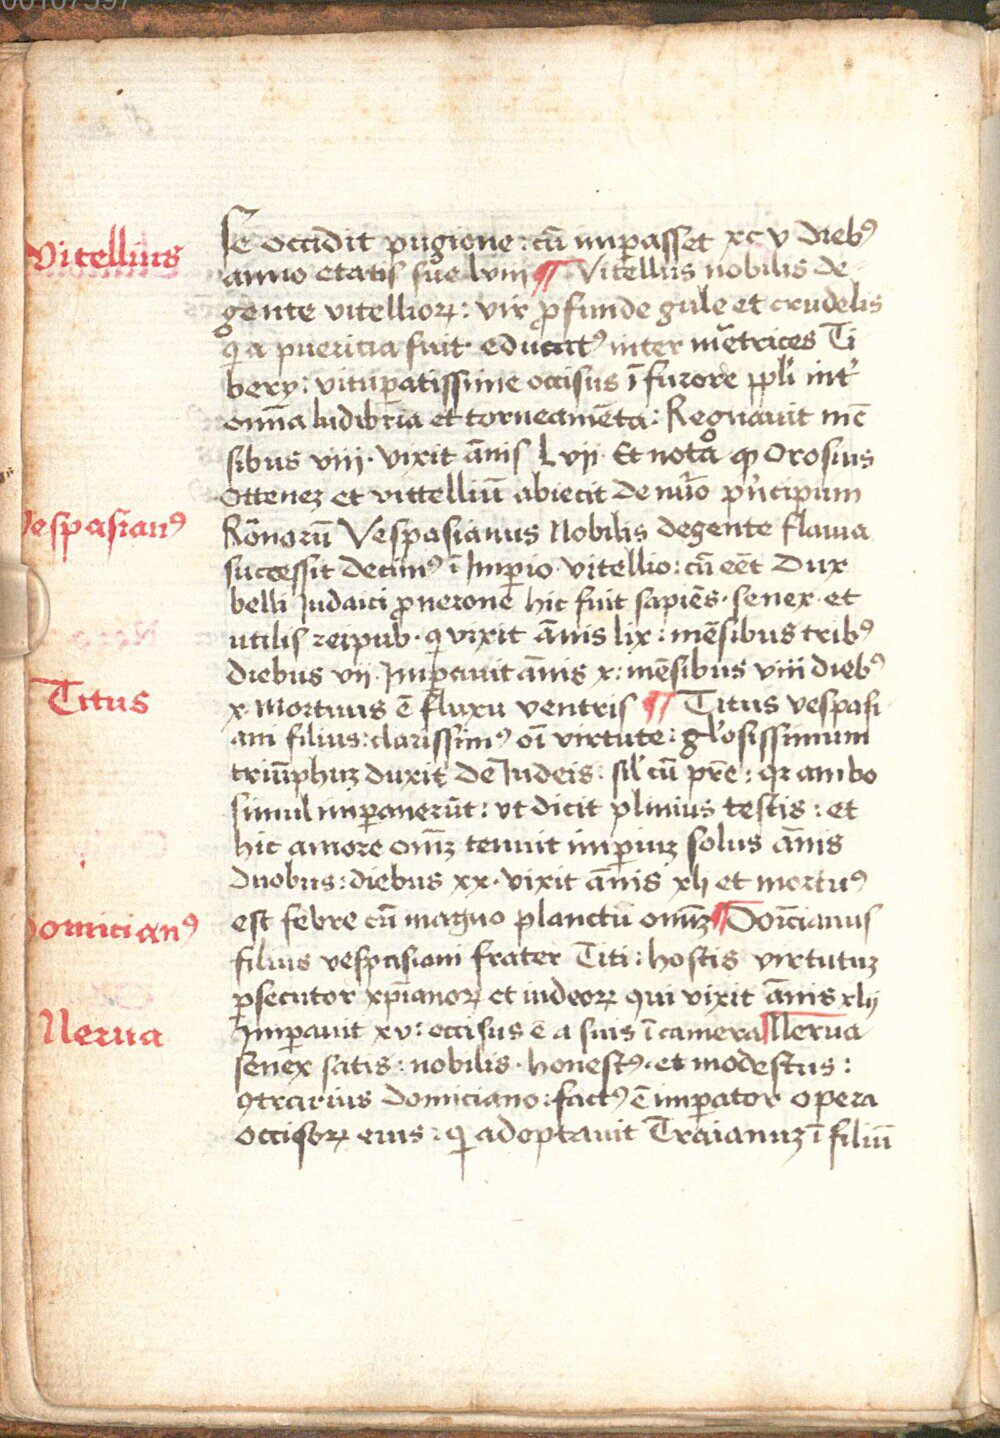 Vitellius
Se occidit pugione : cū imꝑasset xcv diebꝰ
anno etatis sue lviii ¶ Vitellius nobilis de
gente vitelliorꝝ : vir ꝓfunde gule et crudelis
qi a puericia fuit educatꝰ inter meretrices Ti
bery : vituꝑatissime occisus ī furore ppli int'
omīa ludibria et torneamēta : Regnauit mē
sibus viii · vixit ānis Lvii · Et nota ꝙ Orosius
ottenez et vittelliū abiecit de nūo pncipum
Vespasianꝰ
Rōnorū Vespasianus Nobilis de gente flauia
successit decimꝰ ī Imꝑio vitellio : cū eēt Dux
belli Judaici ꝓ nerone hic fuit sapiēs · senex · et
utilis reipub · qi vixit ānis lix : mēsibus tribꝰ
diebus vii · Imꝑauit ānis x : mēsibus viii diebꝰ
Titus
x · Mortuus ē fluxu ventris ¶ Titus vespasi
ani filius : clarissimꝰ oī virtute : gl'osissimum
triūphuz duxit de Iudeis : sil' cū pre : qr ambo
simul imꝑauerūt : vt dicit plinius testis : et
hic amore omīz tenuit imꝑiuz solus ānis
duobus : diebus xx · vixit ānis xlij et mortuꝰ
Domicianꝰ
est febre cū magno planctu omīz ¶ Domīcianus
filius vespasiani frater Titi : hostis virtutuz
ꝑsecutor xp̄ianorꝝ et iudeorꝝ qui vixit ānis xlij
Nerua
Imꝑauit xv : occisus ē a suis ī camera Nerua
senex satis : nobilis · honestꝰ · et modestus :
ꝯtrarius domiciano : factꝰ ē imꝑator opera
occisorꝝ eius : qi adoptauit Traianuz ī filiū